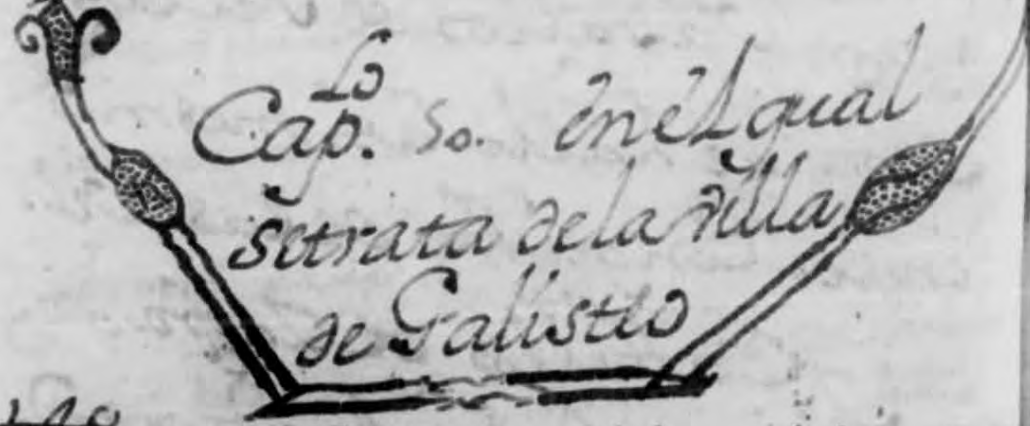 Cap.lo 50. en el qual
se trata de la villa
de Galisteo